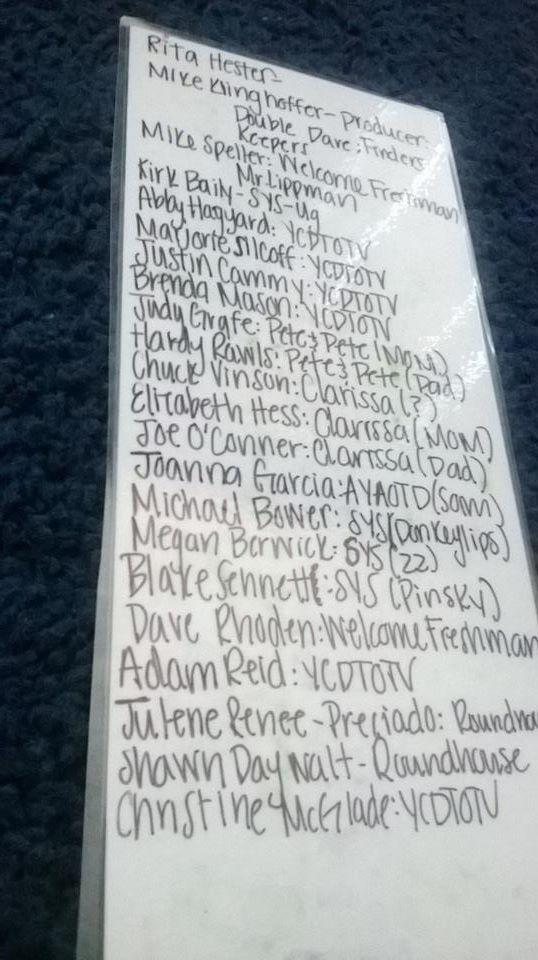 Rita Hester
Mike Klinghoffer - Producer:
Double Dare: Finders
Keepers
Mike Speller: Welcome Freshman
Mr Lippman
Kirk Baily - SYS - Ug
Abby Hagyard: YCDTOTV
Marjorie Silcoff: YCDTOTV
Justin Cammy: YCDTOTV
Brenda Mason: YCDTOTV
Judy Grafe: Pete & Pete (Mom)
Hardy Rawls: Pete & Pete (Dad)
Chuck Vinson: Clarissa (?)
Elizabeth Hess: Clarissa (Mom)
Joe O'Conner: Clarissa (Dad)
Joanna Garcia: AYAOTD (Sam)
Michael Bower: SYS (Donkeylips)
Megan Berwick: SYS (ZZ)
Blake Sennett: SYS (Pinsky)
Dave Rhoden: Welcome Freshman
Adam Reid: YCDTOTV
Julene Renee - Preciado: Roundho
Shawn Daywalt - Roundhouse
Christine McGlade: YCDTOTV